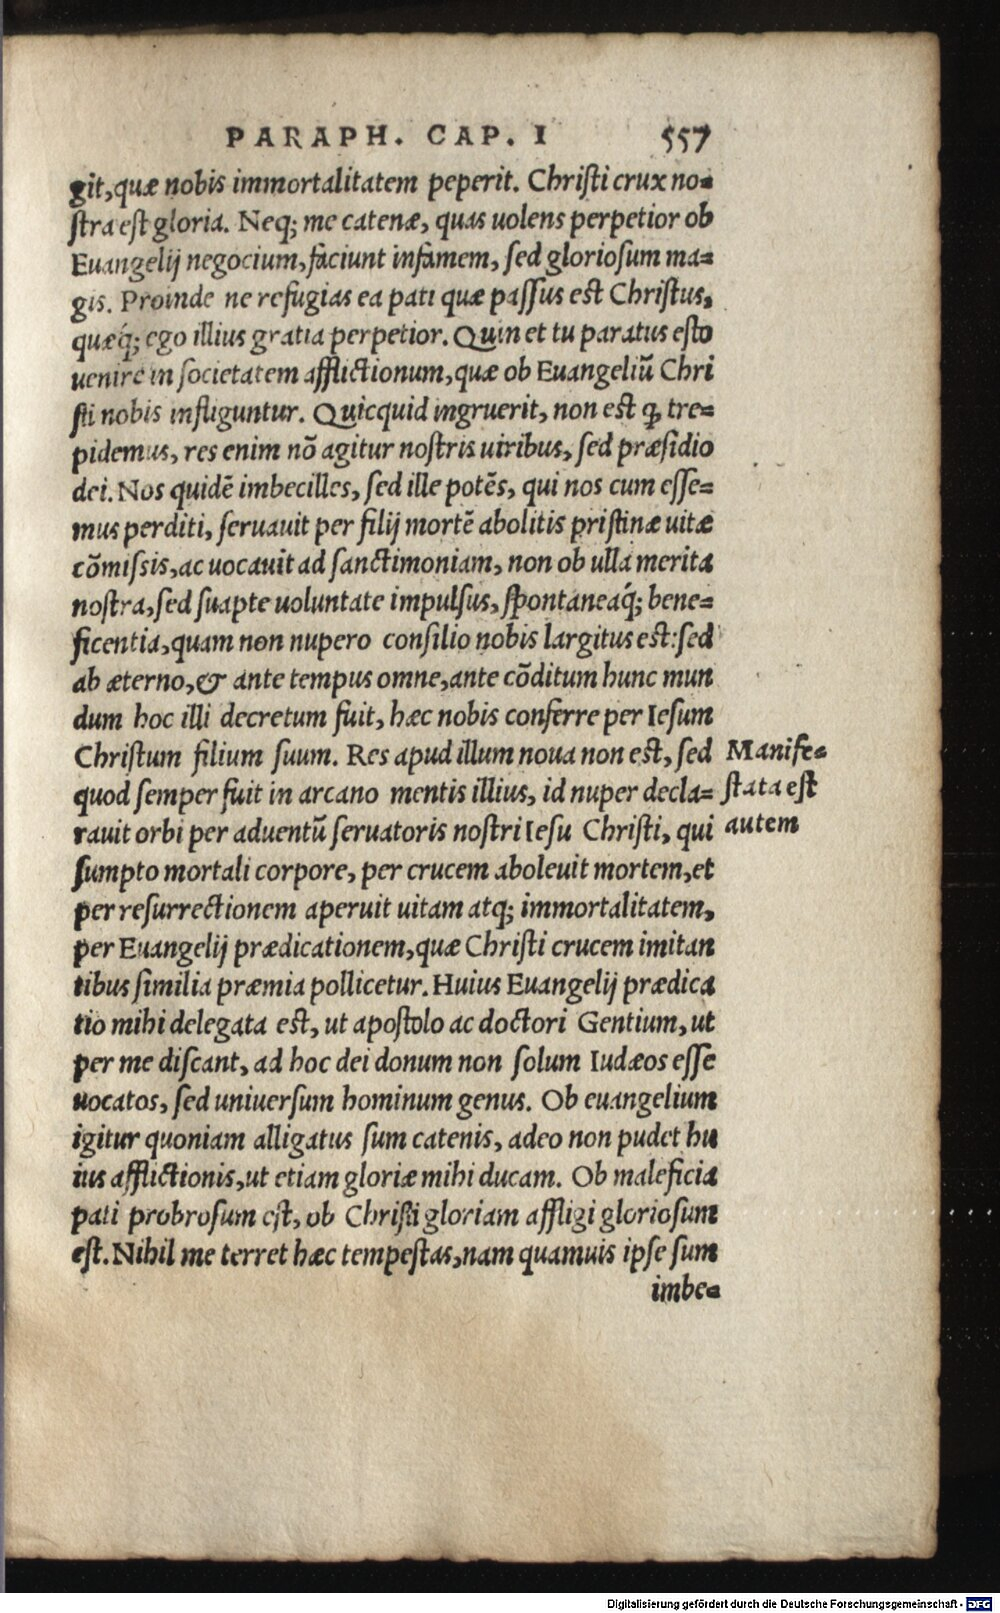 PARAPH. CAP. I 557
git, quæ nobis immortalitatem peperit. Christi crux no=
stra est gloria. Neq; me catenæ, quas uolens perpetior ob
Euangelij negocium, faciunt infamem, sed gloriosum ma=
gis. Proinde ne refugias ea pati quæ passus est Christus,
quæq́; ego illius gratia perpetior. Quin et tu paratus esto
uenire in societatem afflictionum, quæ ob Euangeliũ Chri
sti nobis infliguntur. Quicquid ingruerit, non est ꝙ tre=
pidemus, res enim nõ agitur nostris uiribus, sed præsidio
dei. Nos quidẽ imbecilles, sed ille potẽs, qui nos cum esse=
mus perditi, seruauit per filij mortẽ abolitis pristinæ uitæ
cõmissis, ac uocauit ad sanctimoniam, non ob ulla merita
nostra, sed suapte uoluntate impulsus, spontaneaq́; bene=
ficentia, quam non nupero consilio nobis largitus est: sed
ab æterno, & ante tempus omne, ante cõditum hunc mun
dum hoc illi decretum fuit, hæc nobis conferre per Iesum
Christum filium suum. Res apud illum noua non est, sed
quod semper fuit in arcano mentis illius, id nuper decla=
rauit orbi per aduentũ seruatoris nostri Iesu Christi, qui
sumpto mortali corpore, per crucem aboleuit mortem, et
per resurrectionem aperuit uitam atq; immortalitatem,
per Euangelij prædicationem, quæ Christi crucem imitan
tibus similia præmia pollicetur. Huius Euangelij prædica
tio mihi delegata est, ut apostolo ac doctori Gentium, ut
per me discant, ad hoc dei donum non solum Iudæos esse
uocatos, sed uniuersum hominum genus. Ob euangelium
igitur quoniam alligatus sum catenis, adeo non pudet hu
ius afflictionis, ut etiam gloriæ mihi ducam. Ob maleficia
pati probrosum est, ob Christi gloriam affligi gloriosum
est. Nihil me terret hæc tempestas, nam quamuis ipse sum
imbe=
Manife=
stata est
autem
Digitalisierung gefördert durch die Deutsche Forschungsgemeinschaft - DFG